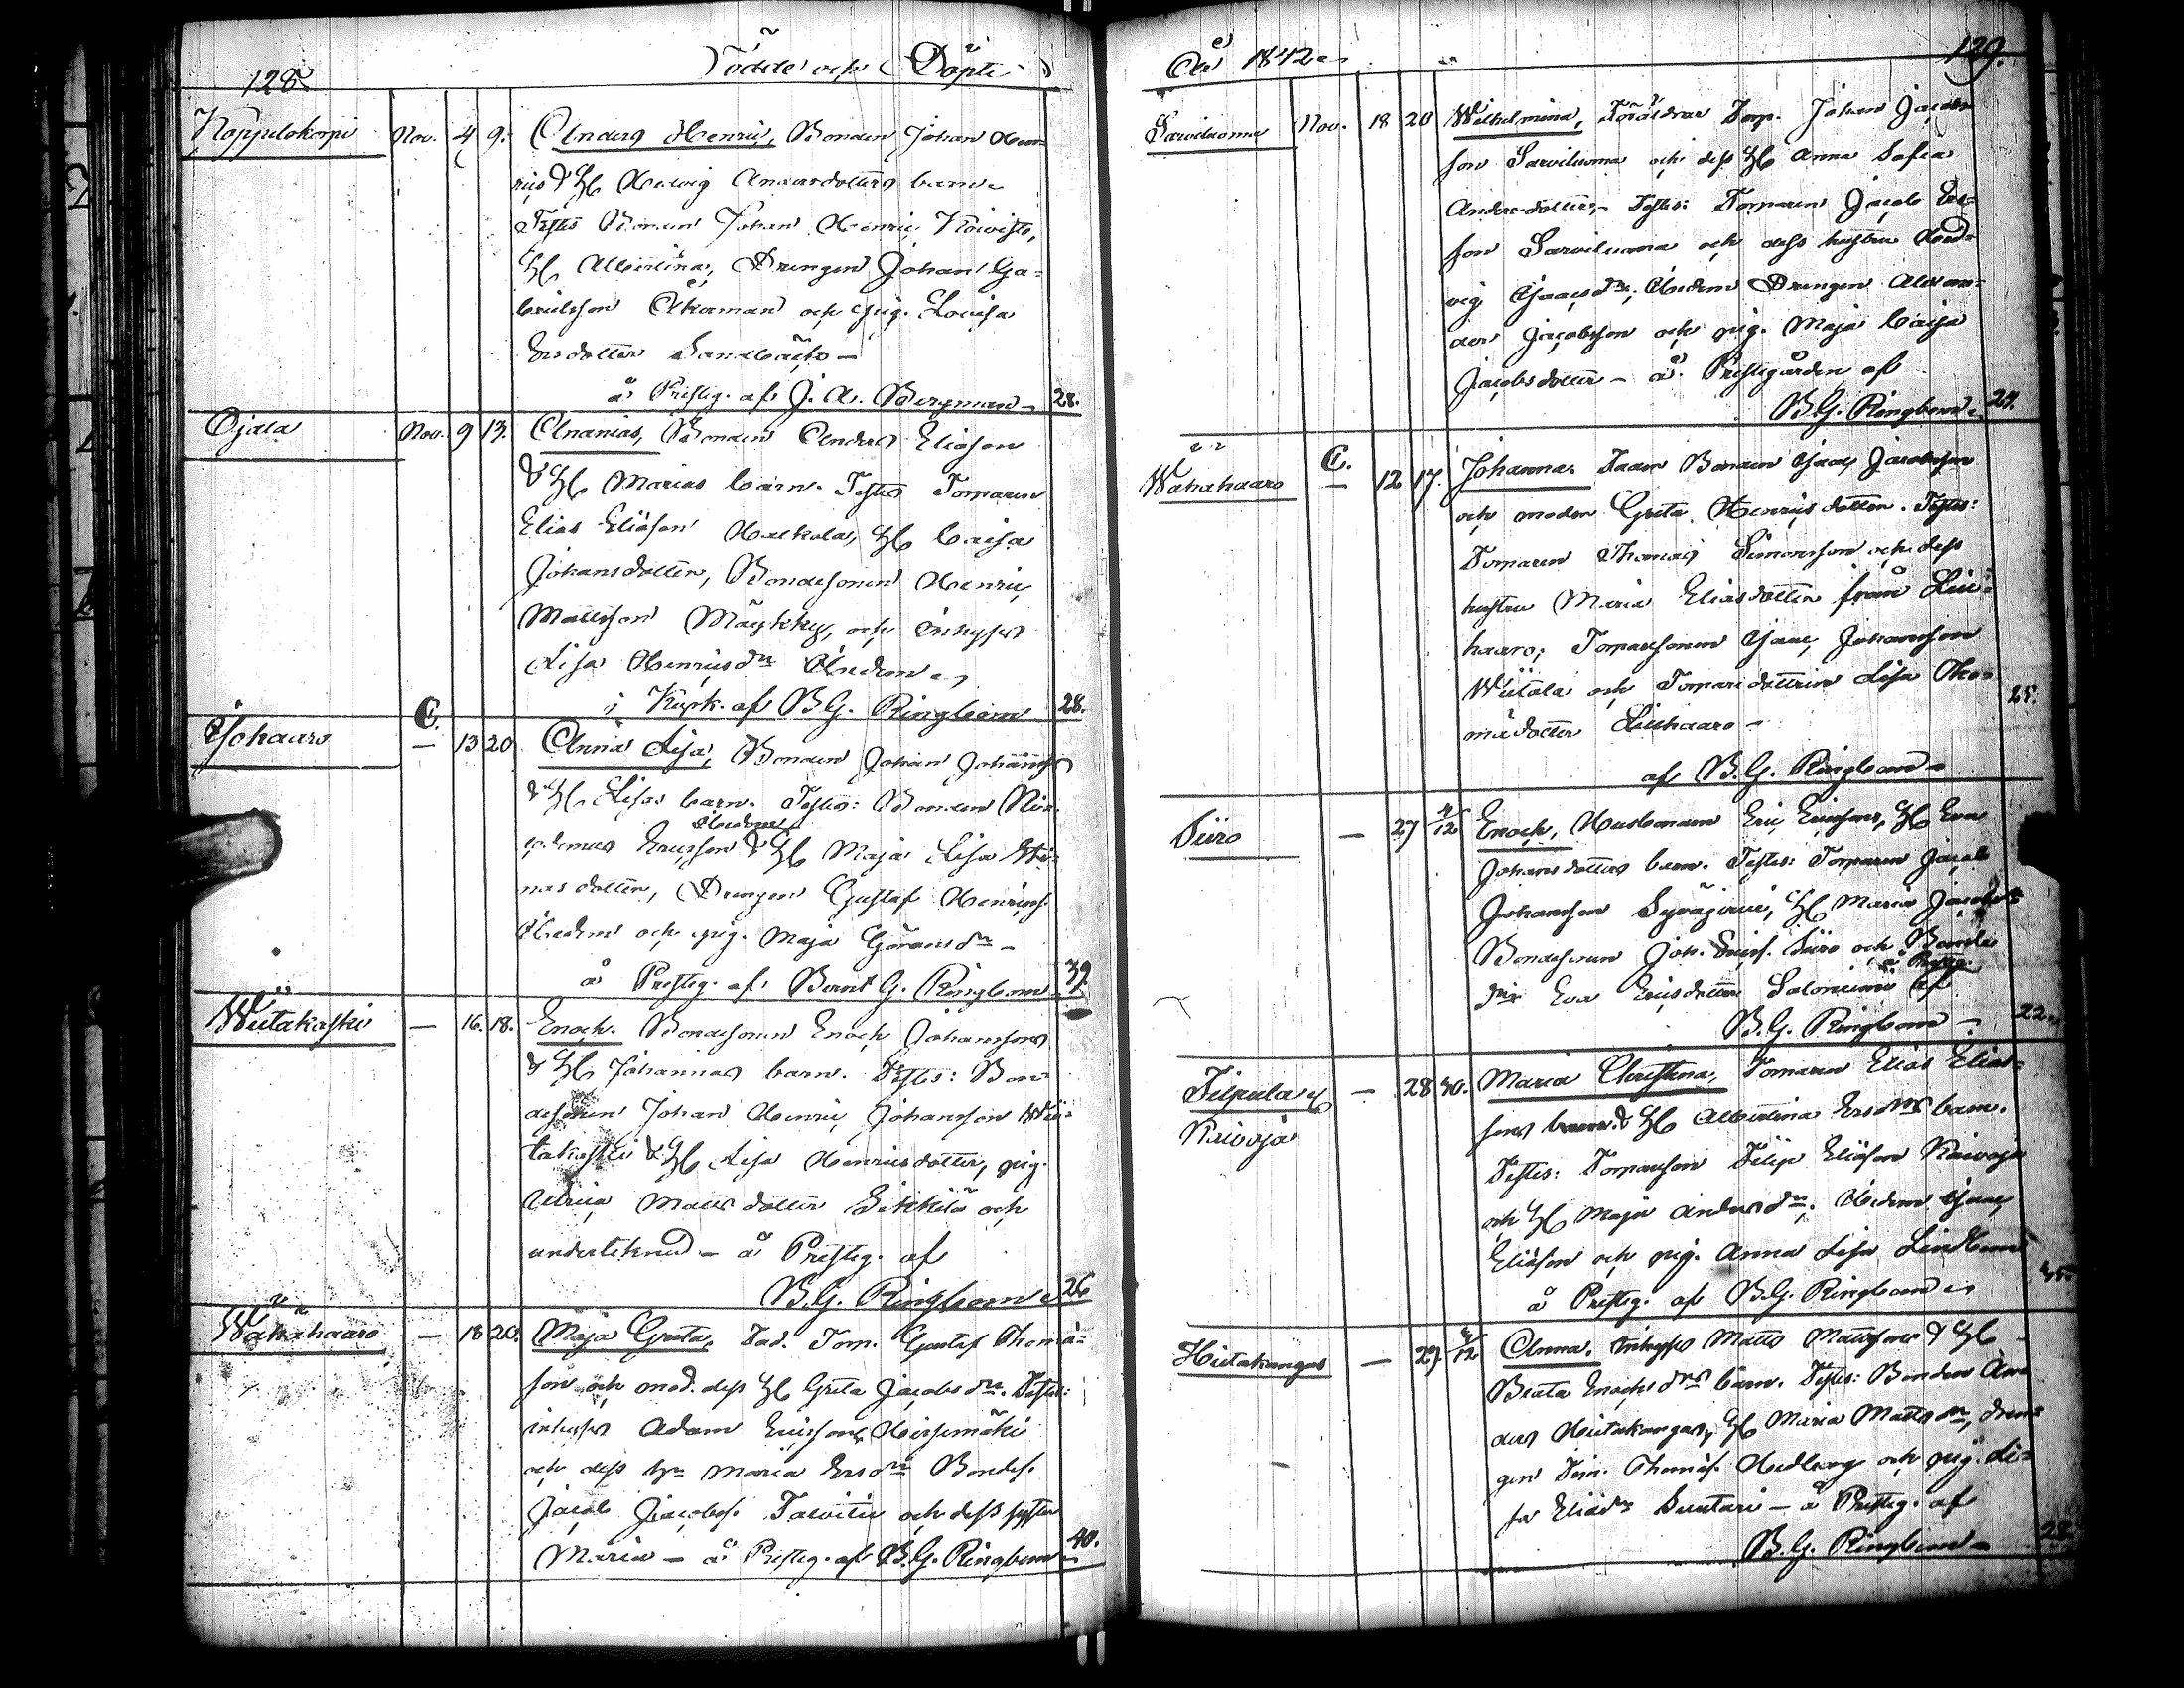 128
Födde och Döpte
Koppelokorpi Nov. 4 9. Anders Henric, Bonden Johan Hen-
rics & H Hedvig Andersdotters barn.
Testes Bonden Johan Henric Koivisto,
H Albertina, Drengen Johan Ga-
brielsson Åkerman och pig. Lovisa
Ersdotter Sandbäck –
å Presteg. af J. A. Bergman – 28.
Ojala Nov. 9 13. Ananias, Bonden Anders Eliasson
& H Marias barn. Testes Torparen
Elias Eliasson H Caisa
Johansdotter, Bondesonen Henric
Mattsson Mäykky, och inhyses
Lisa Henricsdr Hedm
i Kyrk. af B G. Ringbom 28.
C.
Isohaaro — 13 20 Anna Lisa, Bonden Johan Johanss
& H Lisas barn. Testes: Bonden Nic-
odemus Ericsson & H Maja Lisa
dotter, Drengen Gustaf Henricss.
och pig. Maja Göransdr –
å Presteg. af Bernt G. Ringbom 39.
Wiitakoski — 16. 18. Enoch. Bondesonen Enoch Johanssons
& H Johannas barn. Testes: Bon-
desonen Johan Henric Johansson Wii-
takoski & H Lisa Henricsdotter, pig.
Ulrica Mattsdotter Sikkilä och
underteknad – å Presteg. af
B. G. Ringbom 26
Wähähaaro — 18 20. Maja Greta, Fad. Torp. Gustaf Thomæ-
son och mod. dess H Greta Jacobsdr. Testes:
inhyses Adam Ericsson Hirsimäki
och dess hu Maria Ersdr Bondes.
Jacob Jacobss. Tarvitii och dess syster
Maria – å Presteg. af B. G. Ringbom 40.
År 1842
129.
Sarviluoma Nov. 18 20 Wilhelmina, Föräldrar Torp. Johan Jacobs-
son Sarviluoma och dess H Anna Sofia
Andersdotter – Testes: Torparen Jacob Ers-
son Sarviluoma och dess hustru Hed-
vig Isacsdr, Drengen Alexan-
der Jacobsson och pig. Maja Caisa
Jacobsdotter – å Prestegården af
B. G. Ringbom 24.
C.
Wähähaaro — 12 17. Johanna. Fadren Bonden Isac Jacobsson
och modren Greta Henricsdotter. Testes:
Torparen Thomas Simonsson och dess
hustru Maria Eliasdotter från Liu-
haaro; Torparesonen Isac Johansson
Wiitala och Torparedottren Lisa Tho-
mædotter Liuhaaro – 25.
af B. G. Ringbom
Siiro — 27 4/12 Enoch, Husbonden Eric Ericssons, H Eva
Johansdotters barn. Testes: Torparen Jacob
Johansson Syväjärvi, H Maria Jacobsdr
Bondesonen Joh. Ericss. Siiro och Bonde-
dr Eva Ericsdotter Saloniemi å Presteg. af
B. G. Ringbom – 22
Filpula l.
Raivoja — 28 30. Maria Christina, Torparen Elias Elias-
sons & H Albertina Ersdrs barn.
Testes: Torpareson Filip Eliasson Raivoja
och H Maja Andersdr, Isac
Eliasson och pig. Anna Lisa Lindbom
å Presteg. af B. G. Ringbom 35.
Hietakangas — 29. 4/12 Anna. Inhyses Matts Mattssons & H
Beata Enochsdrs barn. Testes: Bonden An-
ders Hietakangas, H Maria Mattsdr, dren-
gen Sim. Thomæs. Hedberg och pig. Li-
sa Eliædr Luutari – å Presteg. af
B. G. Ringbom 28.